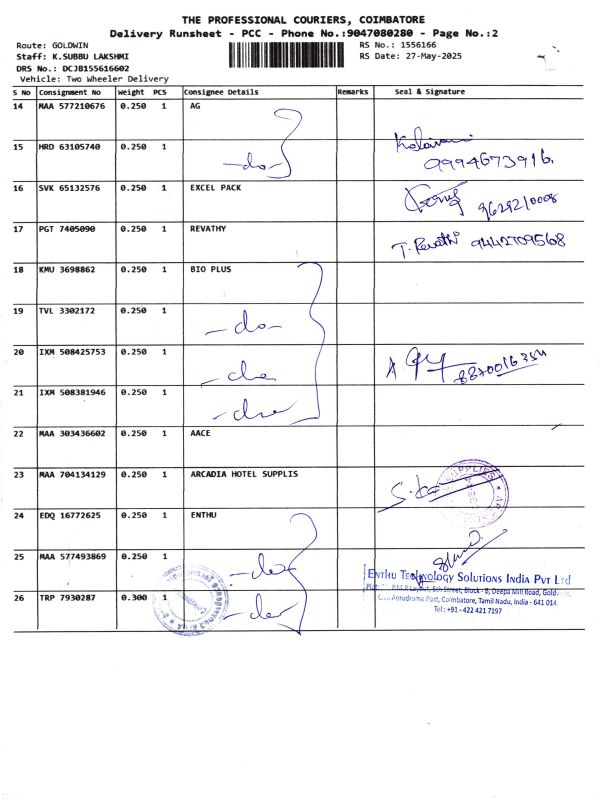 THE PROFESSIONAL COURIERS, COIMBATORE
Delivery Runsheet - PCC - Phone No.:9047080280 - Page No.:2
Route: GOLDWIN RS No.: 1556166
Staff: K.SUBBU LAKSHMI RS Date: 27-May-2025
DRS No.: DCJB155616602
Vehicle: Two Wheeler Delivery
S No Consignment No Weight PCS Consignee Details Remarks Seal & Signature
14 MAA 577210676 0.250 1 AG
15 HRD 63105740 0.250 1 -do-
Kalaivani
9994673916
16 SVK 65132576 0.250 1 EXCEL PACK
17 PGT 7405090 0.250 1 REVATHY T. Revathi 9442709568
18 KMU 3698862 0.250 1 BIO PLUS
19 TVL 3302172 0.250 1 -do-
20 IXM 508425753 0.250 1 -do- 8870016354
21 IXM 508381946 0.250 1 -do-
22 MAA 303436602 0.250 1 AACE
23 MAA 704134129 0.250 1 ARCADIA HOTEL SUPPLIS
24 EDQ 16772625 0.250 1 ENTHU
25 MAA 577493869 0.250 1 -do-
26 TRP 7930287 0.300 1 -do-
ENTHU TECHNOLOGY SOLUTIONS INDIA PVT LTD
Layout, 5th Street, Block - B, Deepa Mill Road, Goldwins,
Civil Aerodrome Post, Coimbatore, Tamil Nadu, India - 641 014.
Tel : +91 - 422 421 7197